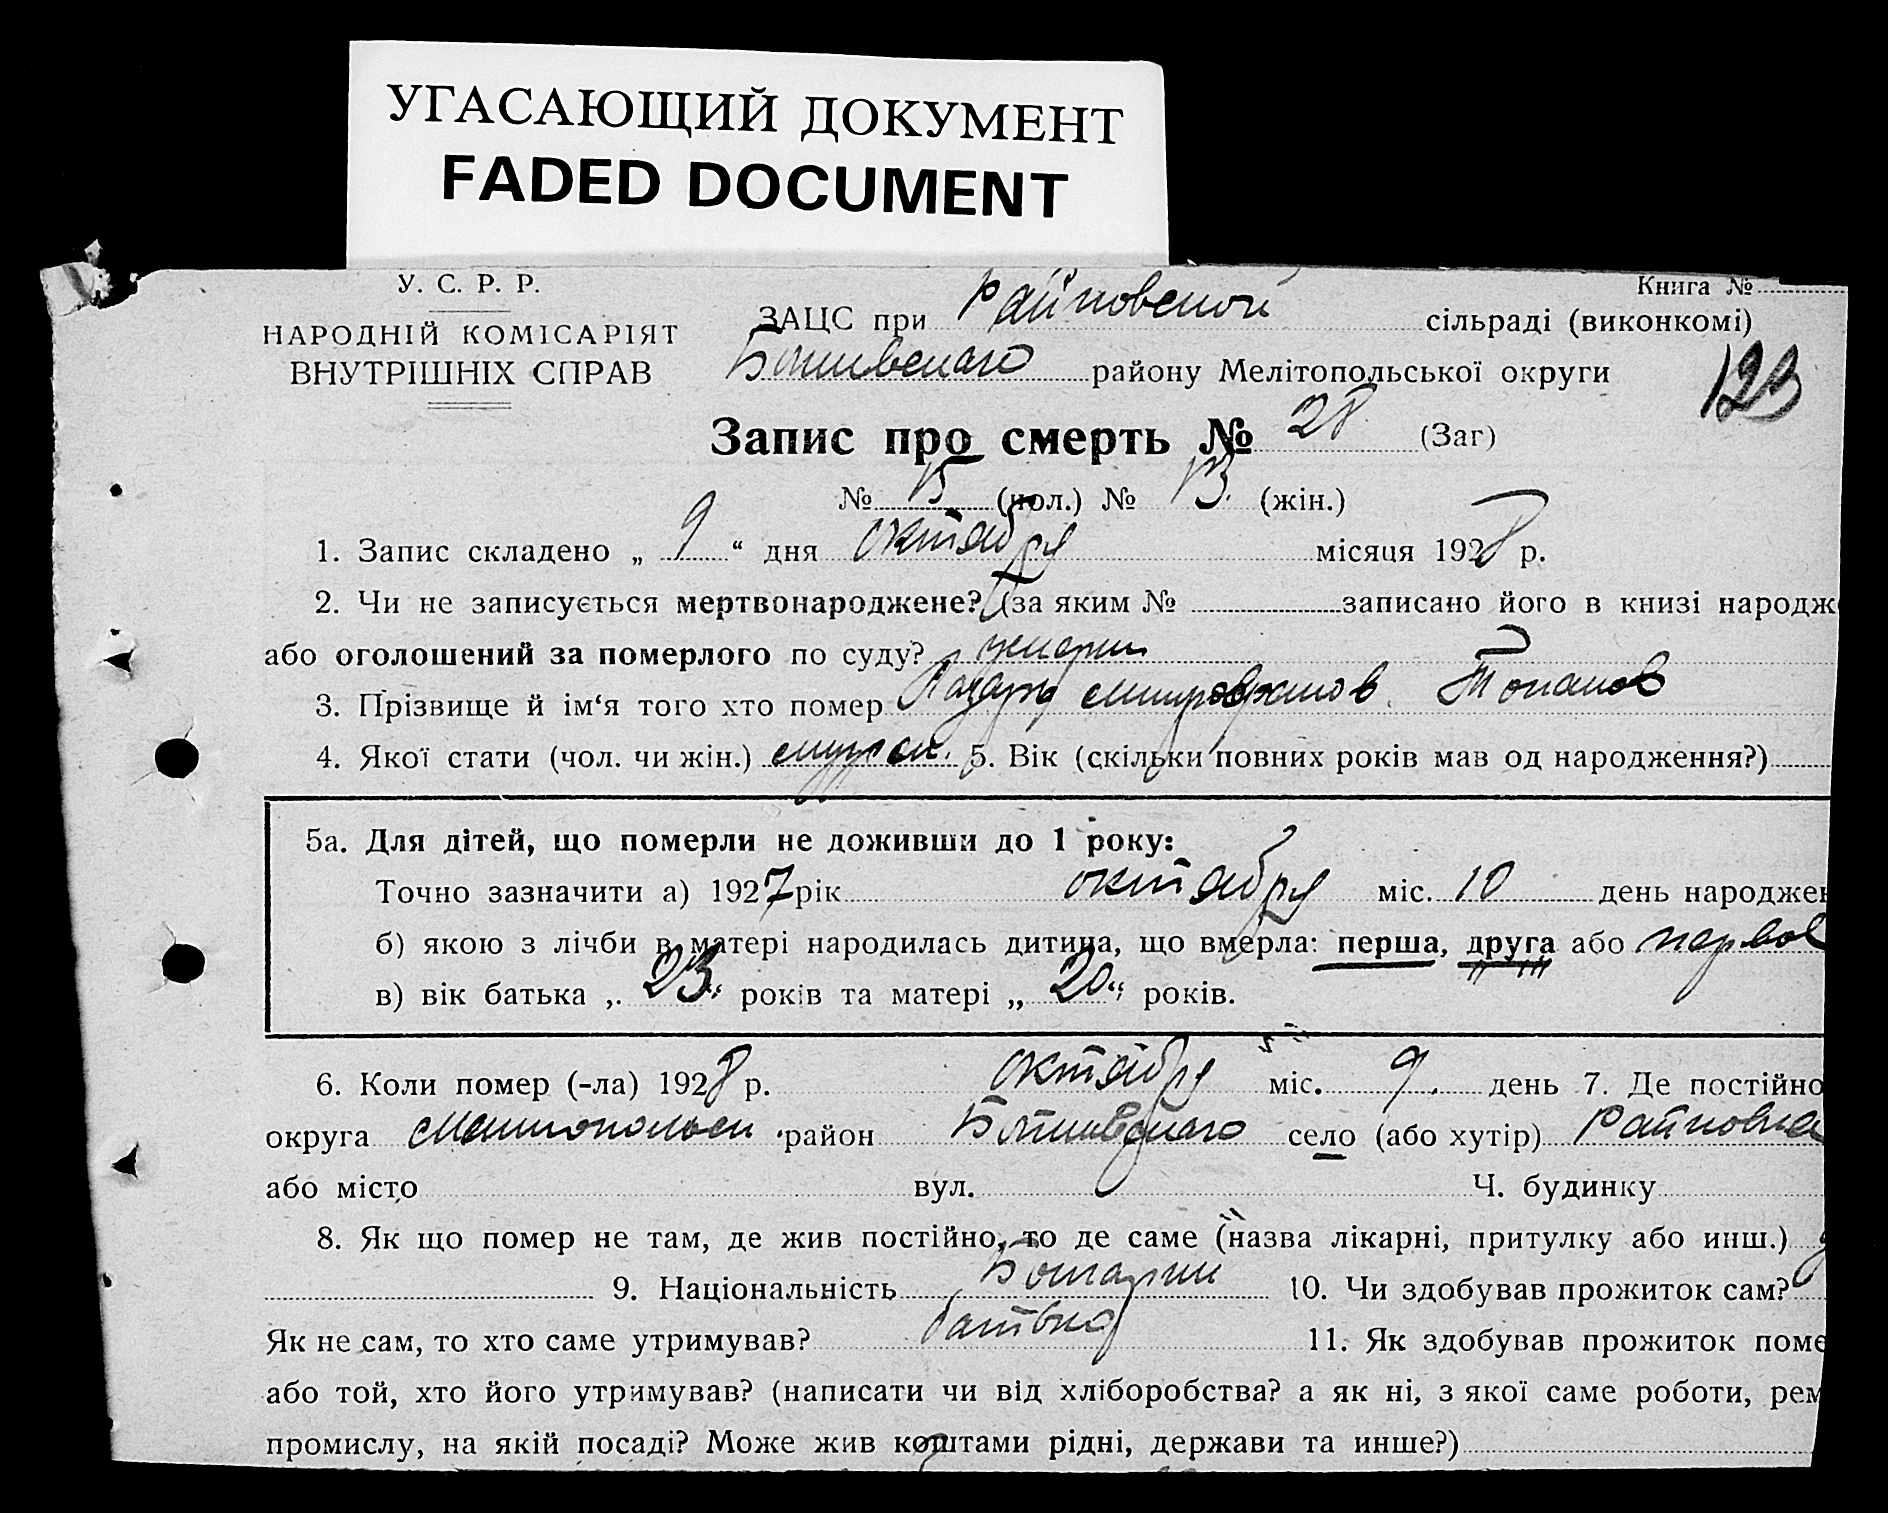 УГАСАЮЩИЙ ДОКУМЕНТ
FADED DOCUMENT
У. С. Р. Р.
НАРОДНІЙ КОМІСАРІЯТ
ВНУТРІШНІХ СПРАВ
Книга №
ЗАЦС при Райновской сільраді (виконкомі)
району Мелітопольської округи
123
Запис про смерть № 28 (Заг)
№ 15 (чол.) № 13. (жін.)
1. Запис складено „ 9 “ дня октября місяця 1928 р.
2. Чи не записується мертвонароджене? (за яким № записано його в книзі народж
або оголошений за померлого по суду? умерш
3. Прізвище й ім‘я того хто помер Топалов
4. Якої стати (чол. чи жін.) 5. Вік (скільки повних років мав од народження?)
5а. Для дітей, що померли не доживши до 1 року:
Точно зазначити а) 1927 рік октября міс. 10 день народжен
б) якою з лічби в матері народилась дитина, що вмерла: перша, друга або первой
в) вік батька „ 23 “ років та матері „ 20 “ років.
6. Коли помер (-ла) 1928 р. октября міс. 9. день 7. Де постійно
округа район село (або хутір) Райновка
або місто вул. Ч. будинку
8. Як що помер не там, де жив постійно, то де саме (назва лікарні, притулку або инш.)
9. Національність 10. Чи здобував прожиток сам?
Як не сам, то хто саме утримував? 11. Як здобував прожиток поме
або той, хто його утримував? (написати чи від хліборобства? а як ні, з якої саме роботи, рем
промислу, на якій посаді? Може жив коштами рідні, держави та инше?)